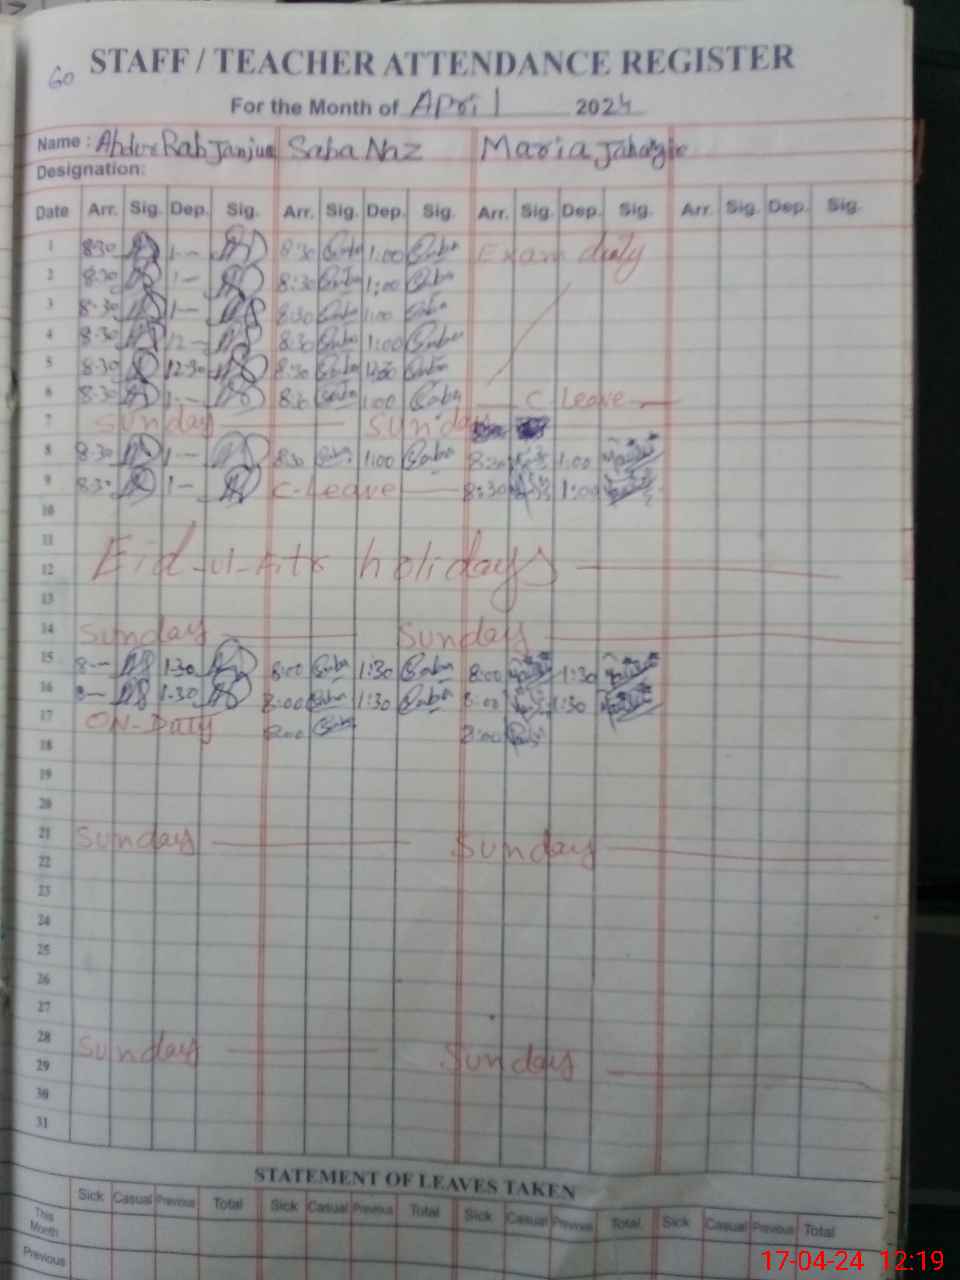 60
STAFF / TEACHER ATTENDANCE REGISTER
For the Month of April 2024
Name : Abdur Rab Janjua Saba Naz Maria Jahangir
Designation:
Date Arr. Sig. Dep. Sig. Arr. Sig. Dep. Sig. Arr. Sig. Dep. Sig. Arr. Sig. Dep. Sig.
1 8:30 1- 8:30 Saba 1:00 Saba Exam duty
2 8:30 1- 8:30 Saba 1:00 Saba
3 8:30 1- 8:30 Saba 1:00 Saba
4 8:30 12- 8:30 Saba 1:00 Saba
5 8:30 12:30 8:30 Saba Saba
6 8:30 1- 8:30 Saba 1:00 Saba C. Leave
7 Sunday Sunday
8 8:30 1- 8:30 Saba 1:00 Saba 8:30 1:00
9 8:30 1- C-Leave 8:30 1:00
10
11
12 Eid-ul-Fitr holidays
13
14 Sunday Sunday
15 8- 1:30 8:00 Saba 1:30 Saba 8:00 1:30
16 8- 1:30 8:00 Saba 1:30 Saba 8:00 1:30
17 ON-Duty 8:00 Saba 8:00
18
19
20
21 Sunday Sunday
22
23
24
25
26
27
28 Sunday Sunday
29
30
31
STATEMENT OF LEAVES TAKEN
Sick Casual Previous Total Sick Casual Previous Total Sick Casual Previous Total Sick Casual Previous Total
This Month
Previous
17-04-24 12:19